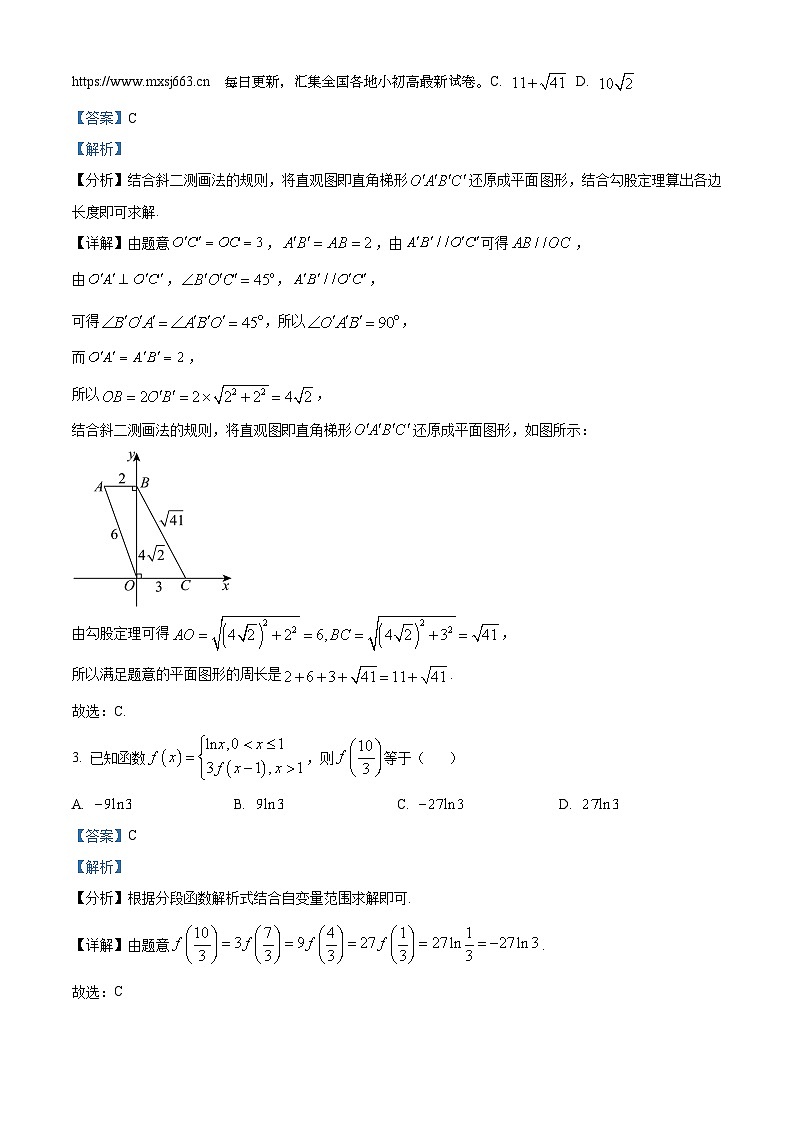 https://www.mxsj663.cn 每日更新，汇集全国各地小初高最新试卷。C. 11+√41 D. 10√2
【答案】C
【解析】
【分析】结合斜二测画法的规则，将直观图即直角梯形O′A′B′C′还原成平面图形，结合勾股定理算出各边
长度即可求解.
【详解】由题意O′C′=OC=3，A′B′=AB=2，由A′B′//O′C′可得AB//OC，
由O′A′⊥O′C′，∠B′O′C′=45°，A′B′//O′C′，
可得∠B′O′A′=∠A′B′O′=45°,所以∠O′A′B′=90°，
而O′A′=A′B′=2，
所以OB=2O′B′=2×√(2²+2²)=4√2，
结合斜二测画法的规则，将直观图即直角梯形O′A′B′C′还原成平面图形，如图所示：
y
A 2 B
√41
6
4√2
O 3 C x
由勾股定理可得AO=√((4√2)²+2²)=6,BC=√((4√2)²+3²)=√41，
所以满足题意的平面图形的周长是2+6+3+√41=11+√41.
故选：C.
3. 已知函数f(x)={lnx,0<x≤1
3f(x−1),x>1，则f(10/3)等于（ ）
A. −9ln3 B. 9ln3 C. −27ln3 D. 27ln3
【答案】C
【解析】
【分析】根据分段函数解析式结合自变量范围求解即可.
【详解】由题意f(10/3)=3f(7/3)=9f(4/3)=27f(1/3)=27ln1/3=−27ln3.
故选：C